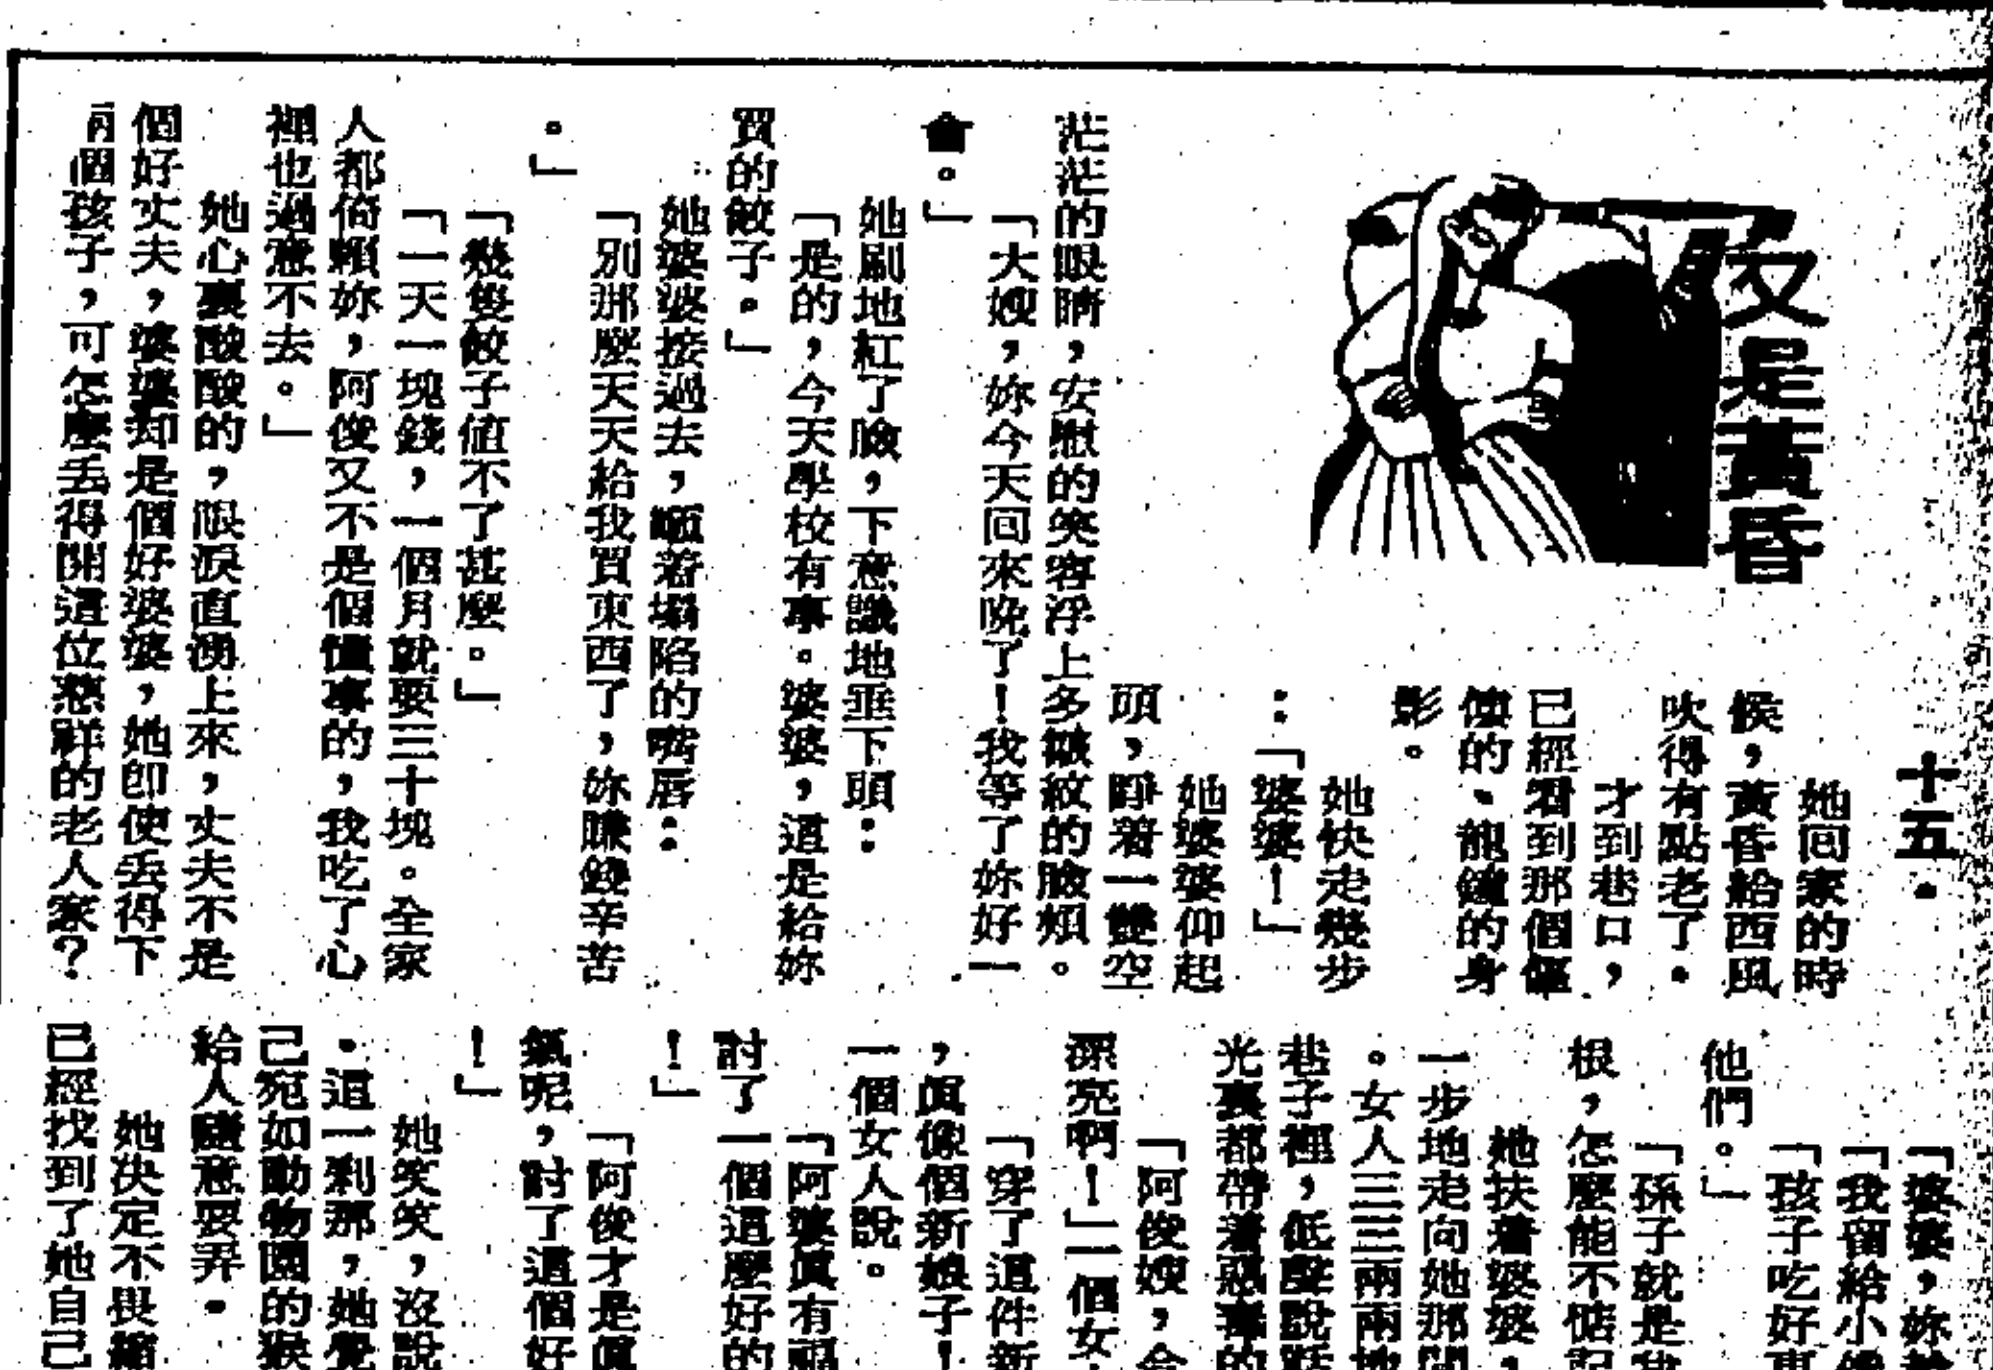 又是黃昏
十五.
她回家的時
候，黃昏給西風
吹得有點老了。
才到巷口，
已經看到那個傴
僂的、龍鍾的身
影。
她快走幾步
：「婆婆！」
她婆婆仰起
頭，睜着一雙空
茫茫的眼睛，安慰的笑容浮上多皺紋的臉頰。
「大嫂，妳今天回來晚了！我等了妳好一
會。」
她刷地紅了臉，下意識地垂下頭：
「是的，今天學校有事。婆婆，這是給妳
買的餃子。」
她婆婆接過去，顫着塌陷的嘴唇：
「別那麼天天給我買東西了，妳賺錢辛苦
。」
「幾隻餃子值不了甚麼。」
「一天一塊錢，一個月就要三十塊。全家
人都倚賴妳，阿俊又不是個懂事的，我吃了心
裡也過意不去。」
她心裏酸酸的，眼淚直湧上來，丈夫不是
個好丈夫，婆婆却是個好婆婆，她即使丢得下
兩個孩子，可怎麼丢得開這位慈祥的老人家？
「婆婆，妳
「我留給小
「孩子吃好
他們。」
「孫子就是
根，怎麼能不惦記
她扶着婆婆，
一步地走向她那間
。女人三三兩兩地
巷子裡，低聲說話
光裏都帶着惡毒的
「阿俊嫂，今
漂亮啊！」一個女
「穿了這件新
，眞像個新娘子！
一個女人說。
「阿婆眞有福
討了一個這麼好的
！」
「阿俊才是眞
氣呢，討了這個好
！」
她笑笑，沒說
。這一刹那，她覺
己宛如動物園的猴
給人隨意耍弄。
她決定不畏縮
已經找到了她自己